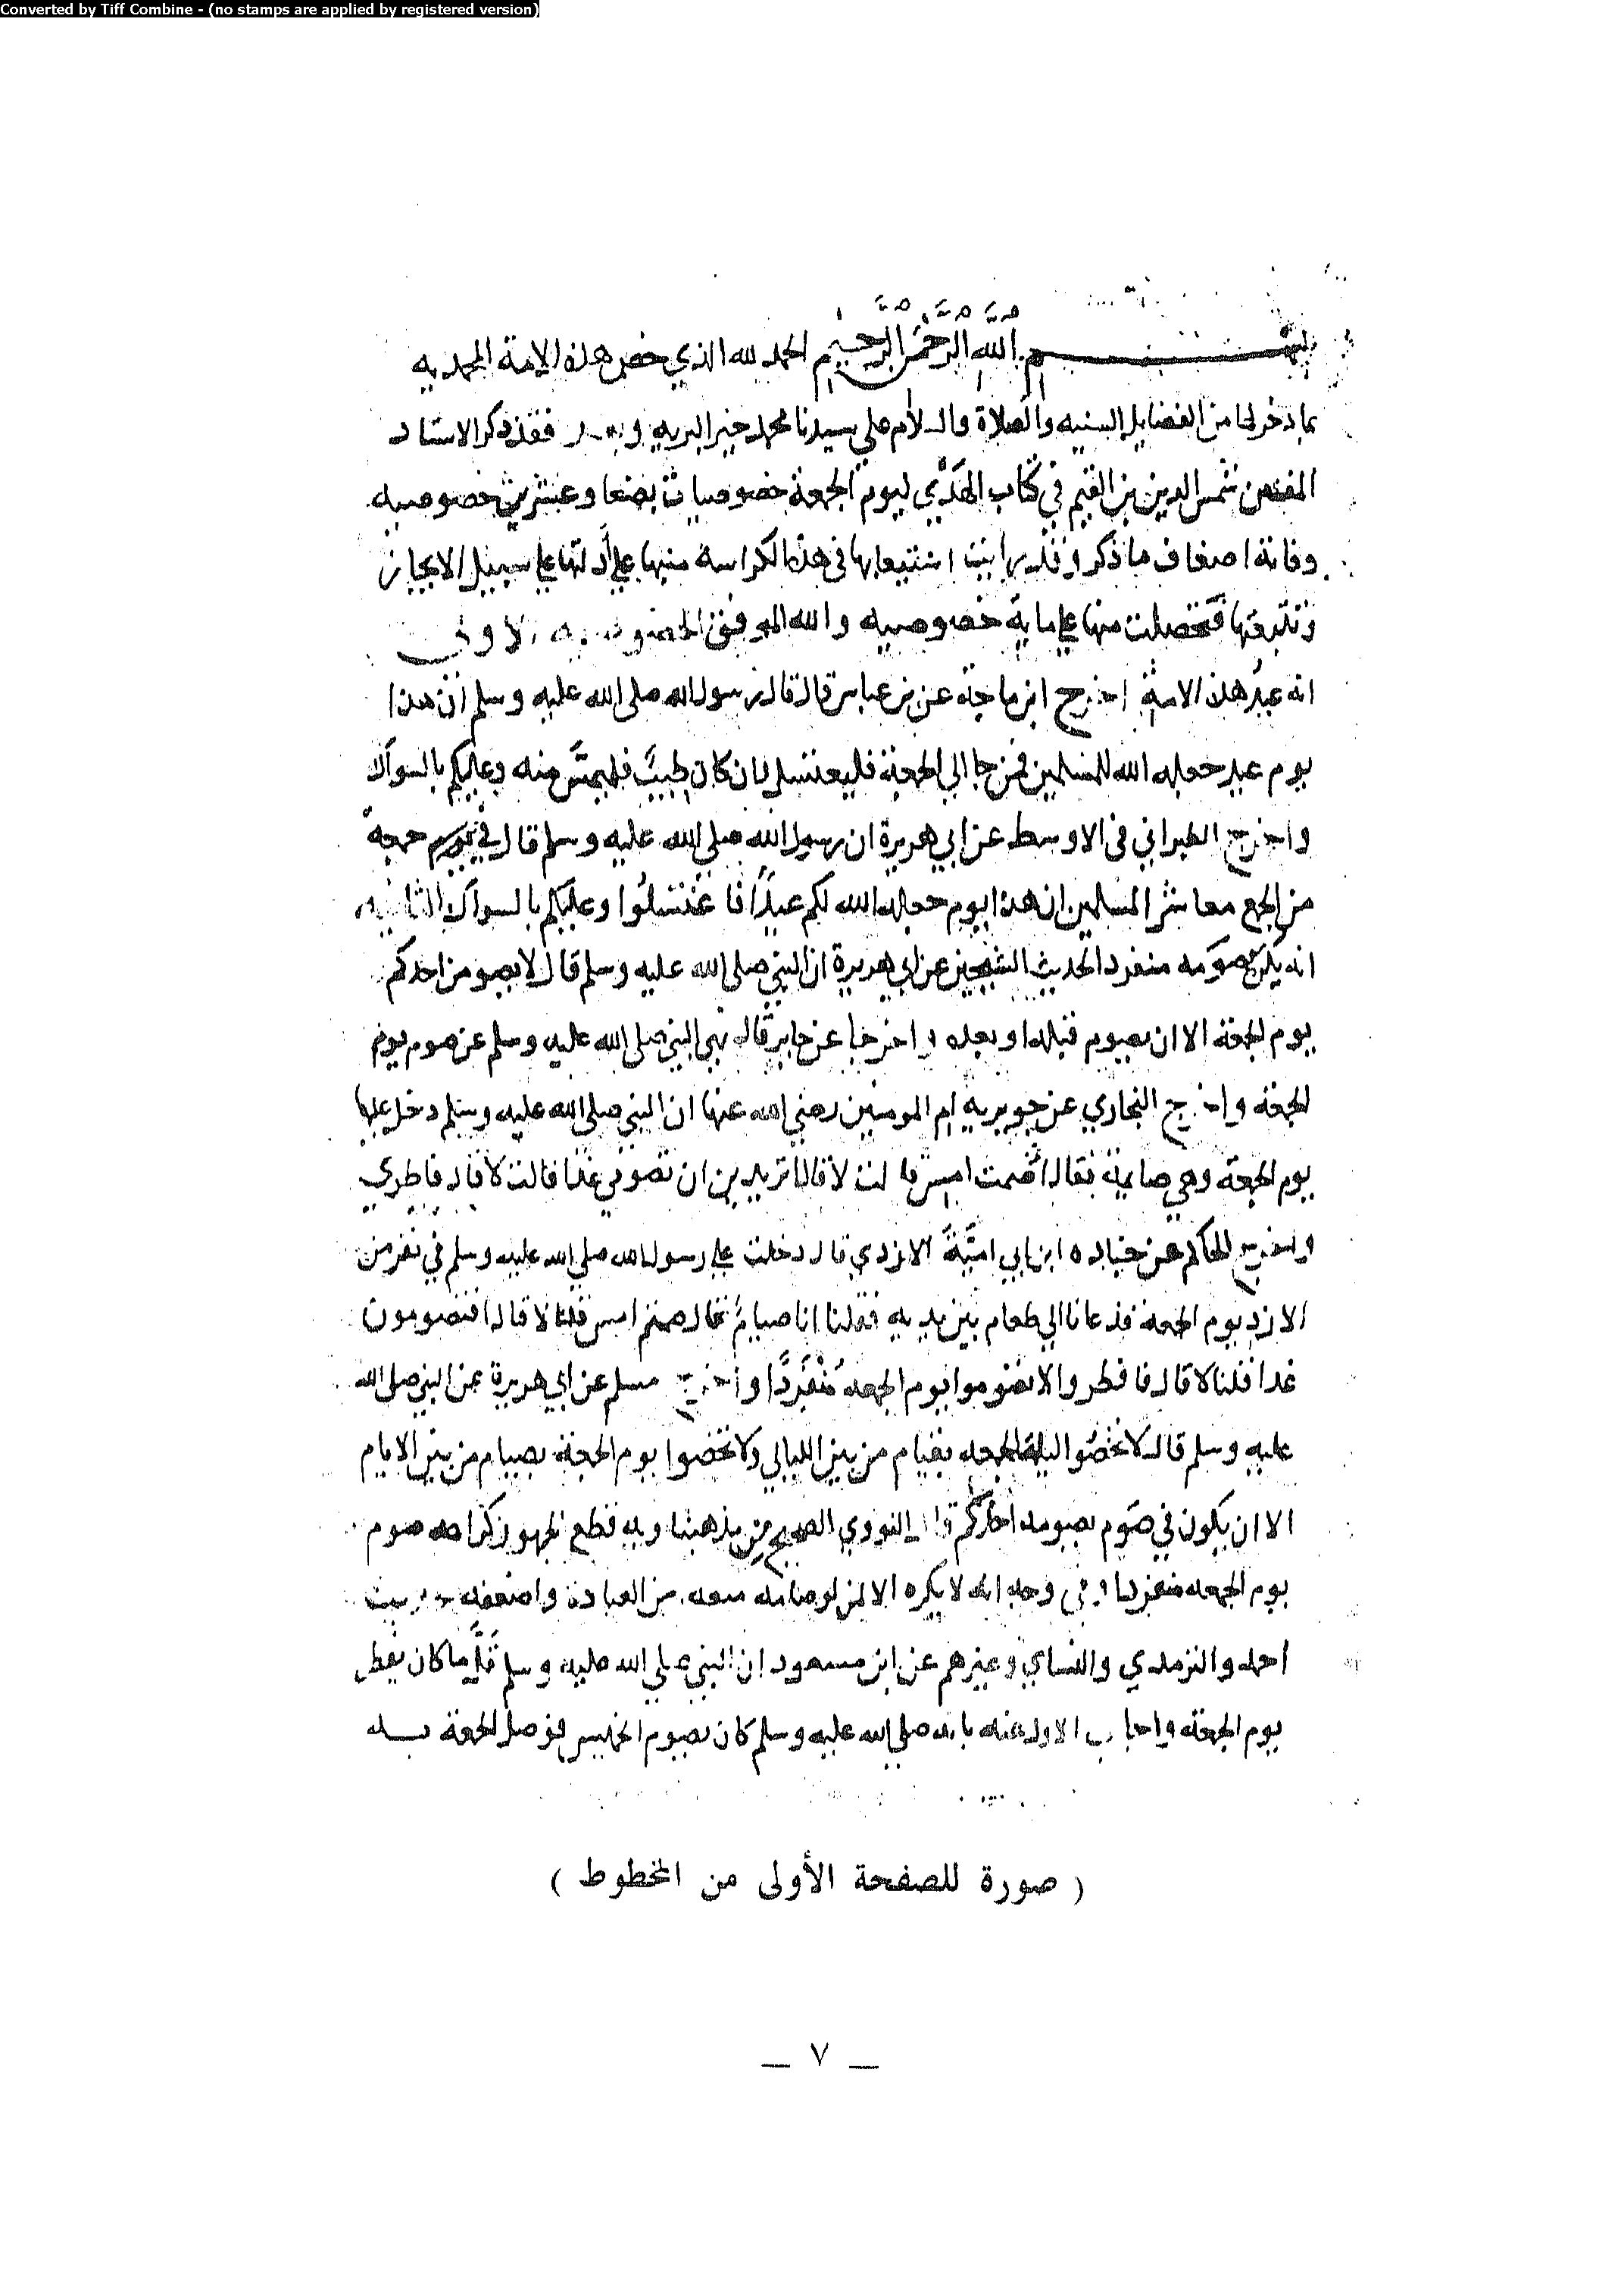 Converted by Tiff Combine - (no stamps are applied by registered version)
بسم الله الرحمن الرحيم الحمد لله الذي خص هذه الامة المحمديه
بما دخر لها من الفضايل السنيه والصلاة والسلام على سيدنا محمد خير البريه و فقد ذكر الاستاد
المفنن شمس الدين بن القيم في كتاب الهدي ليوم الجمعة خصوصيات بضعا وعشرين خصوصيه
وفاته اضعاف ما ذكر وقد رايت استيعابها في هذه الكراسة منبها على أدلتها على سبيل الايجاز
وتتبعتها فتحصلت منها على ماية خصوصيه والله الموفق الخصوصيه الاولى
انه عيد هذه الامة اخرج ابن ماجة عن بن عباس قال قال رسول الله صلى الله عليه وسلم ان هذا
يوم عيد جعله الله للمسلمين فمن جا الي الجمعة فليغتسل وان كان طيب فليمس منه وعليكم بالسواك
واخرج الطبراني في الاوسط عن ابي هريرة ان رسول الله صلى الله عليه وسلم قال في جمعة
من الجمع معاشر المسلمين ان هذا يوم جعله الله لكم عيدًا فاغتسلُوا وعليكم بالسواك الثانيه
انه يكره صومه منفردا لحديث الشيخين عن ابي هريرة ان النبي صلى الله عليه وسلم قال لا يصومن احدكم
يوم الجمعة الا ان يصوم قبله او بعده واخرجا عن جابر قال نهى النبي صلى الله عليه وسلم عن صوم يوم
الجمعة واخرج البخاري عن جويريه ام المومنين رضي الله عنها ان النبي صلى الله عليه وسلم دخل عليها
يوم الجمعة وهي صايمة فقال أصمت امس قالت لا قال اتريدين ان تصومي غدا قالت لا قال فافطري
واخرج الحاكم عن جناده ابن ابي اميَّة الازدي قال دخلت على رسول الله صلى الله عليه وسلم في نفر من
الازد يوم الجمعة فدعانا الي طعام بين يديه فقلنا انا صيام فقال صمتم امس قلنا لا قال افتصومون
غدا قلنا لا قال فافطروا لا تصوموا يوم الجمعه مُنْفَرِدًا واخرج مسلم عن ابي هريرة عن النبي صلى الله
عليه وسلم قال لا تخصُوا ليلة الجمعه بقيام من بين الليالي ولا تخصوا يوم الجمعة بصيام من بين الايام
الا ان يكون في صَوم يصومه احدكم قال النووي الصحيح من مذهبنا وبه قطع الجمهور كراهه صوم
يوم الجمعه منفردا وفي وجه انه لا يكره الا لمن لو صامه منعه من العبادة واضعفه حديث
أحمد والترمدي والنساي وغيرهم عن ابن مسعود ان النبي صلى الله عليه وسلم قلَّما كان يفطر
يوم الجمعة واجاب الاول عنه بانه صلى الله عليه وسلم كان يصوم الخميس فوصل الجمعة به
( صورة للصفحة الأولى من المخطوط )
— ٧ —